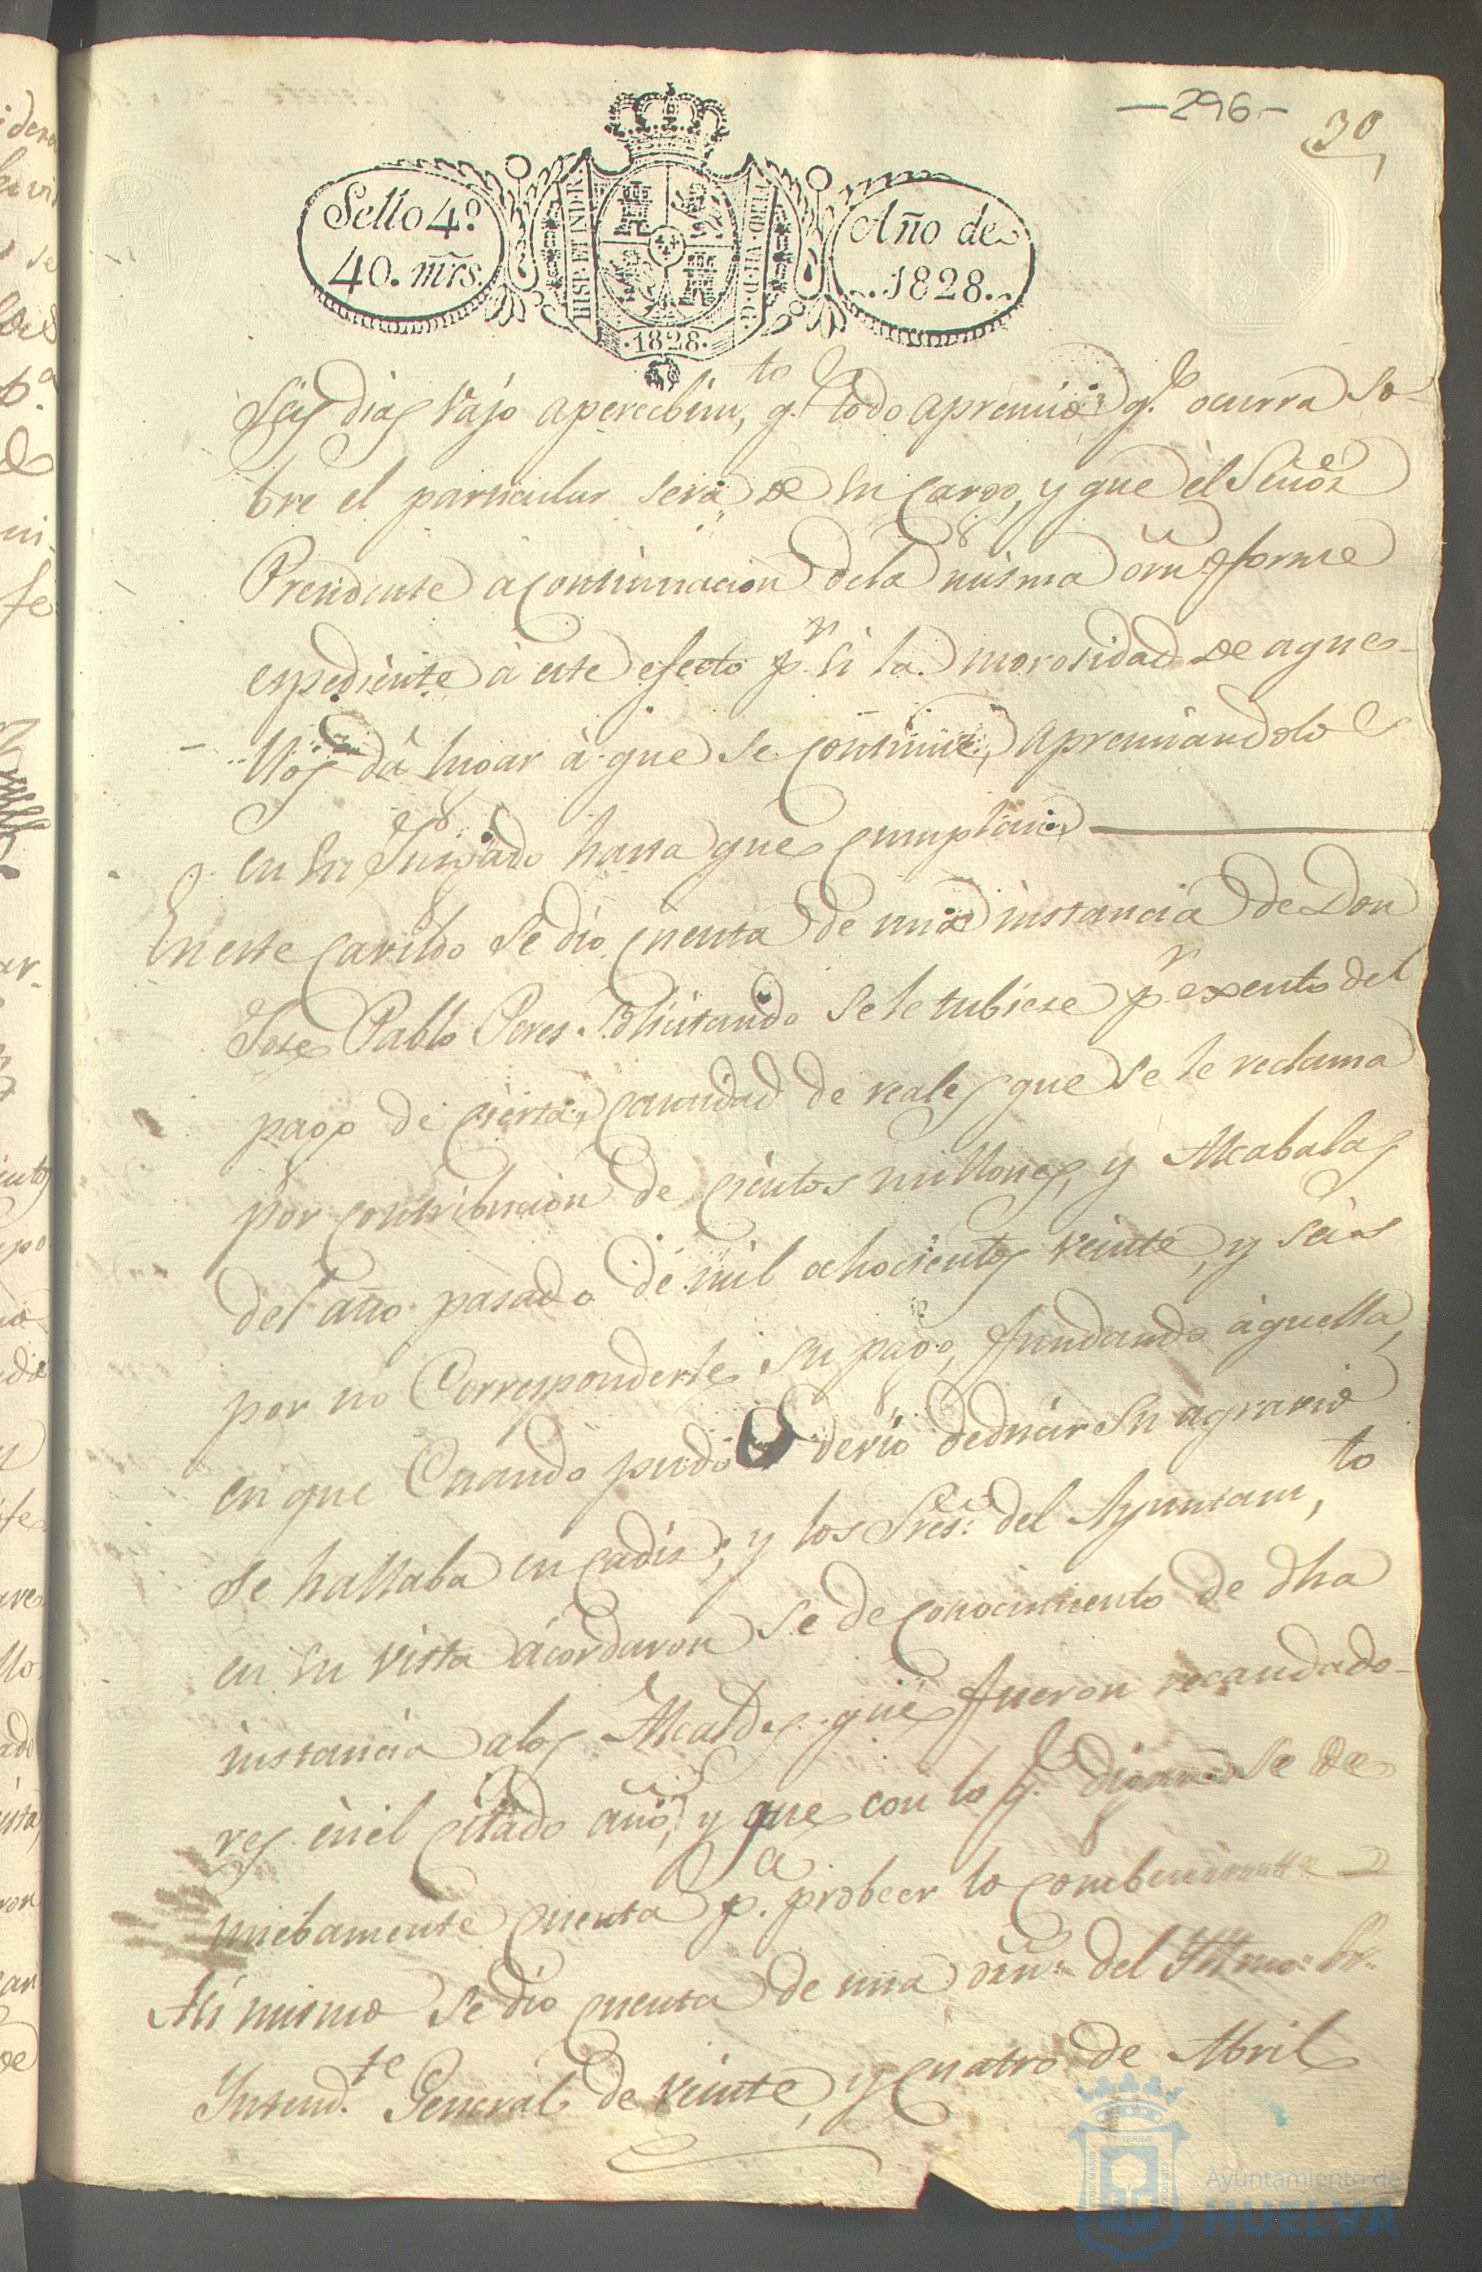 -296-
30
Sello 4º
40. mrs.
HISP. ET IND. R.
Año de
1828.
.1828.
seis dias vajo apercibimto, qe todo apremio qe ocurra so-
bre el particular será de su cargo, y que el Señor
Precidente á continuacion dela misma orn forme
espediente á este efecto pr si la morosidad de aque-
llos dá lugar á que se continue, apremiandolos
en su Juzgado hasta que cumplan
En este Cavildo se dio cuenta de una instancia de Don
Jose Pablo Peres solicitando se le tubiese pr exento del
pago de cierta cantidad de reales que se le reclama
por contribucion de cientos millones, y Alcabalas
del año pasado de mil ochocientos veinte, y seis
por no corresponderle su pago, fundando aquella,
en que cuando pudo ó devió deducir su agravio
se hallaba en Cadis; y los Sres. del Ayuntamto,
en su vista acordaron se de conocimiento de dha
instancia alos Alcaldes que fueron recaudado-
res enel citado año, y que con lo qe digan se de
nuebamente cuenta pa. probeer lo combeniente
Asi mismo se dio cuenta de una orn. del Yltmo. Sr.
Intendte. General de veinte, y cuatro de Abril
Ayuntamiento de
HUELVA